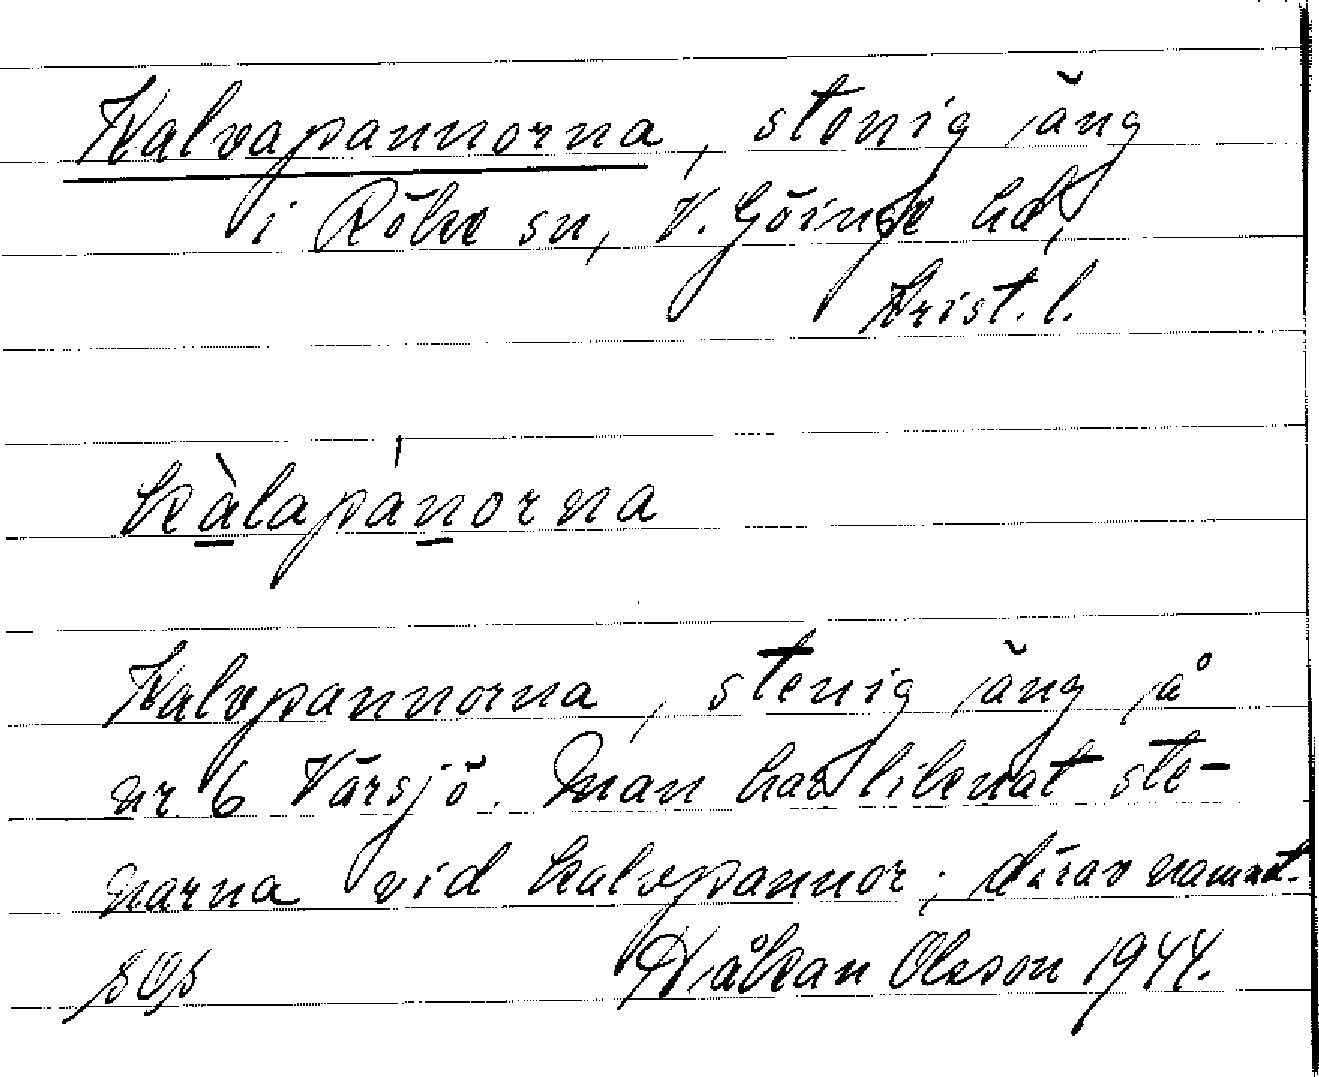 Kalvapannorna, stenig äng
i Röke sn, V. Göinge hd,
Krist. l.
kàlapánorna
Kalvpannorna, stenig äng å
nr 6 Värsjö. Man har liknat ste-
narna vid kalvpannor; därav namnet.
Håkan Olsson 1944.